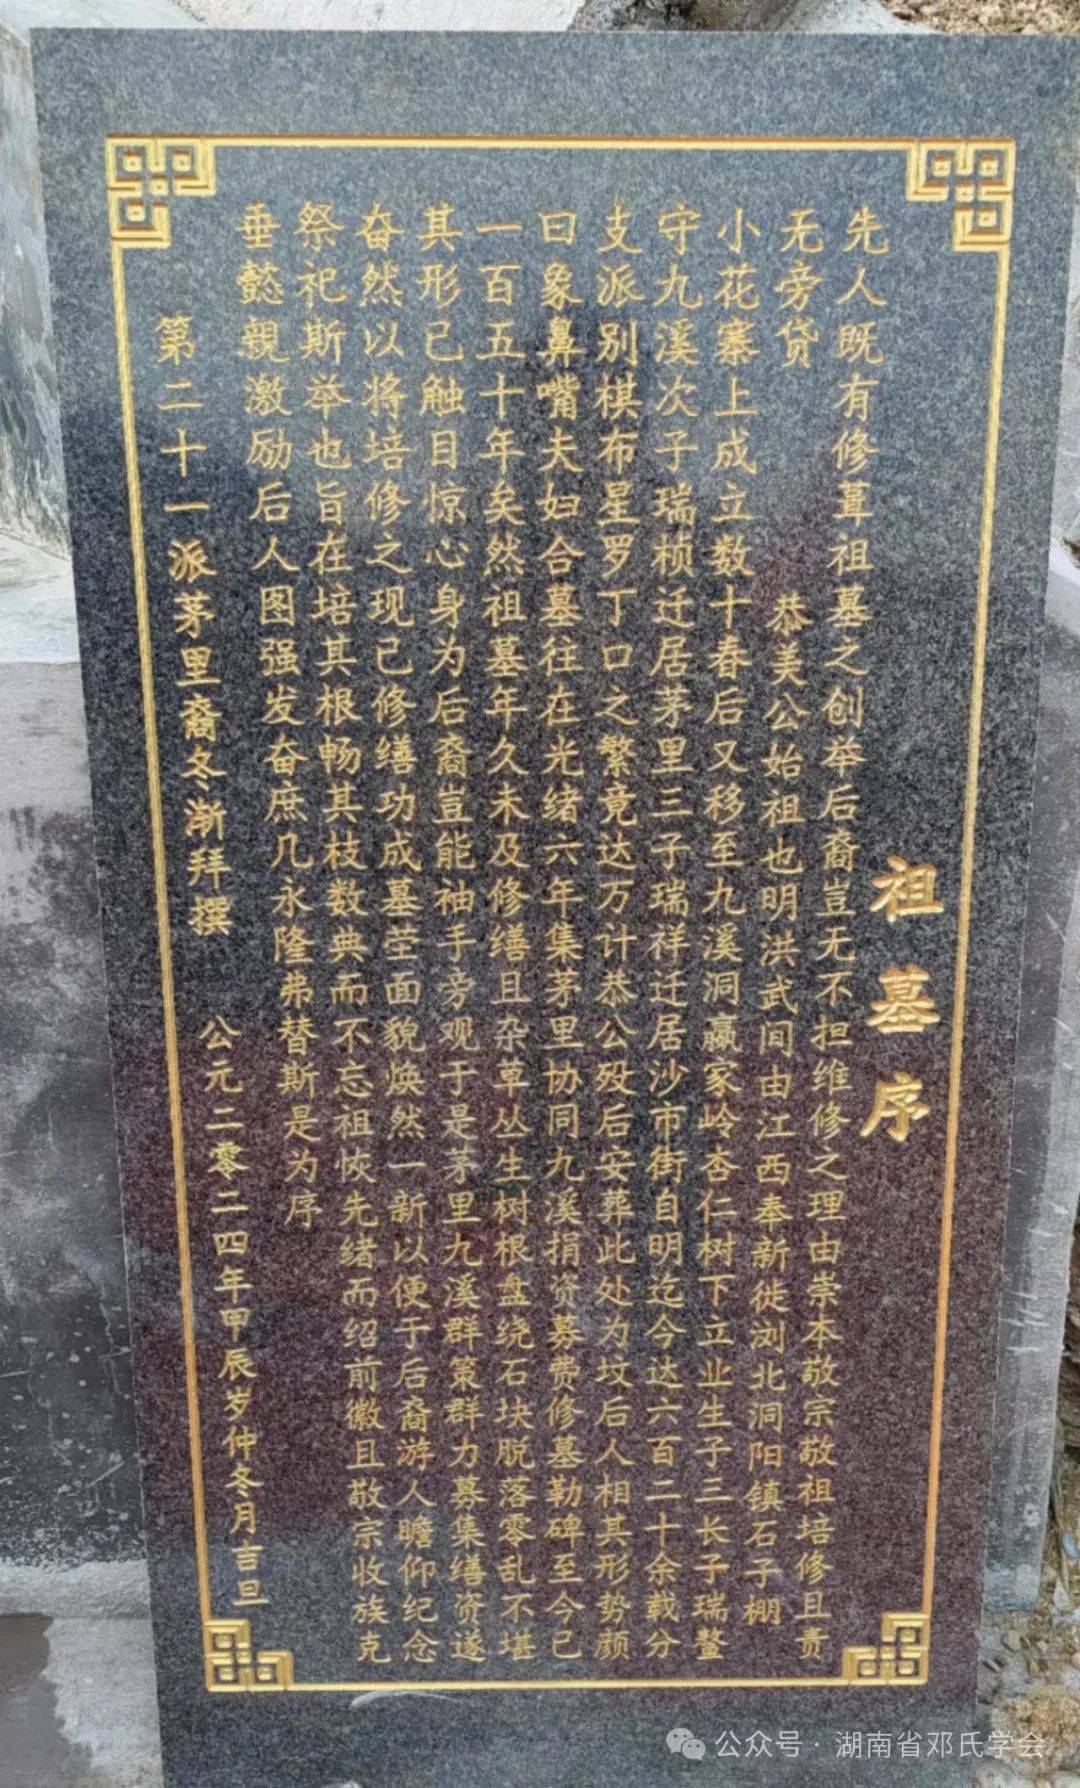 祖墓序
先人既有修葺祖墓之创举后裔岂无不担维修之理由崇本敬宗敬祖培修且责
无旁贷
恭美公始祖也明洪武间由江西奉新徙浏北洞阳镇石子棚
小花寨上成立数十春后又移至九溪洞赢家岭杏仁树下立业生子三长子瑞鳌
守九溪次子瑞桢迁居茅里三子瑞祥迁居沙市街自明迄今达六百二十余载分
支派别棋布星罗丁口之繁竟达万计恭公殁后安葬此处为坟后人相其形势颜
曰象鼻嘴夫妇合墓往在光绪六年集茅里协同九溪捐资募费修墓勒碑至今已
一百五十年矣然祖墓年久未及修缮且杂草丛生树根盘绕石块脱落零乱不堪
其形已触目惊心身为后裔岂能袖手旁观于是茅里九溪群策群力募集缮资遂
奋然以将培修之现已修缮功成墓茔面貌焕然一新以便于后裔游人瞻仰纪念
祭祀斯举也旨在培其根畅其枝数典而不忘祖恢先绪而绍前徽且敬宗收族克
垂懿親激励后人图强发奋庶几永隆弗替斯是为序
第二十一派茅里裔冬渐拜撰
公元二零二四年甲辰岁仲冬月吉旦
公众号·湖南省邓氏学会